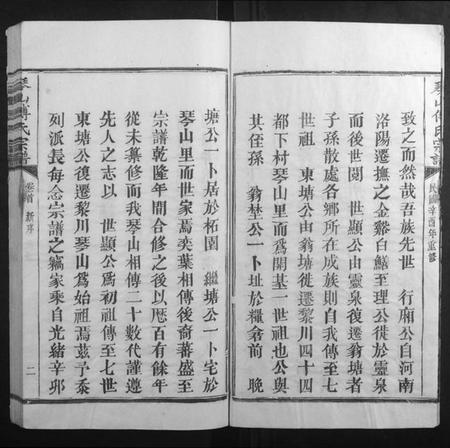 琴山傅氏宗譜
民國辛酉年重修
致之而然哉吾族先世　行廟公自河南
洛陽遷撫之金谿白鱔至理公徙於靈泉
而後世閱　世顯公由靈泉復遷翁塘者
子孫散處各鄉所在成族則自我傳至七
世祖　東塘公由翁塘徙遷黎川四十四
都下村琴山里而為開基一世祖也公與
其侄孫　翁埜公一卜址於糧倉前　晚
塘公一卜居於柘園　繼塘公一卜宅於
琴山里而世家焉奕葉相傳後裔蕃盛至
宗譜乾隆年間合修之後以歷百有餘年
從未纂修而我琴山相傳二十數代謹遵
先人之志以　世顯公為初祖傳至七世
東塘公復遷黎川琴山為始祖焉茲予忝
列派長每念宗譜之竊家乘自光緒辛夘
琴山傅氏宗譜
卷首　新序
二